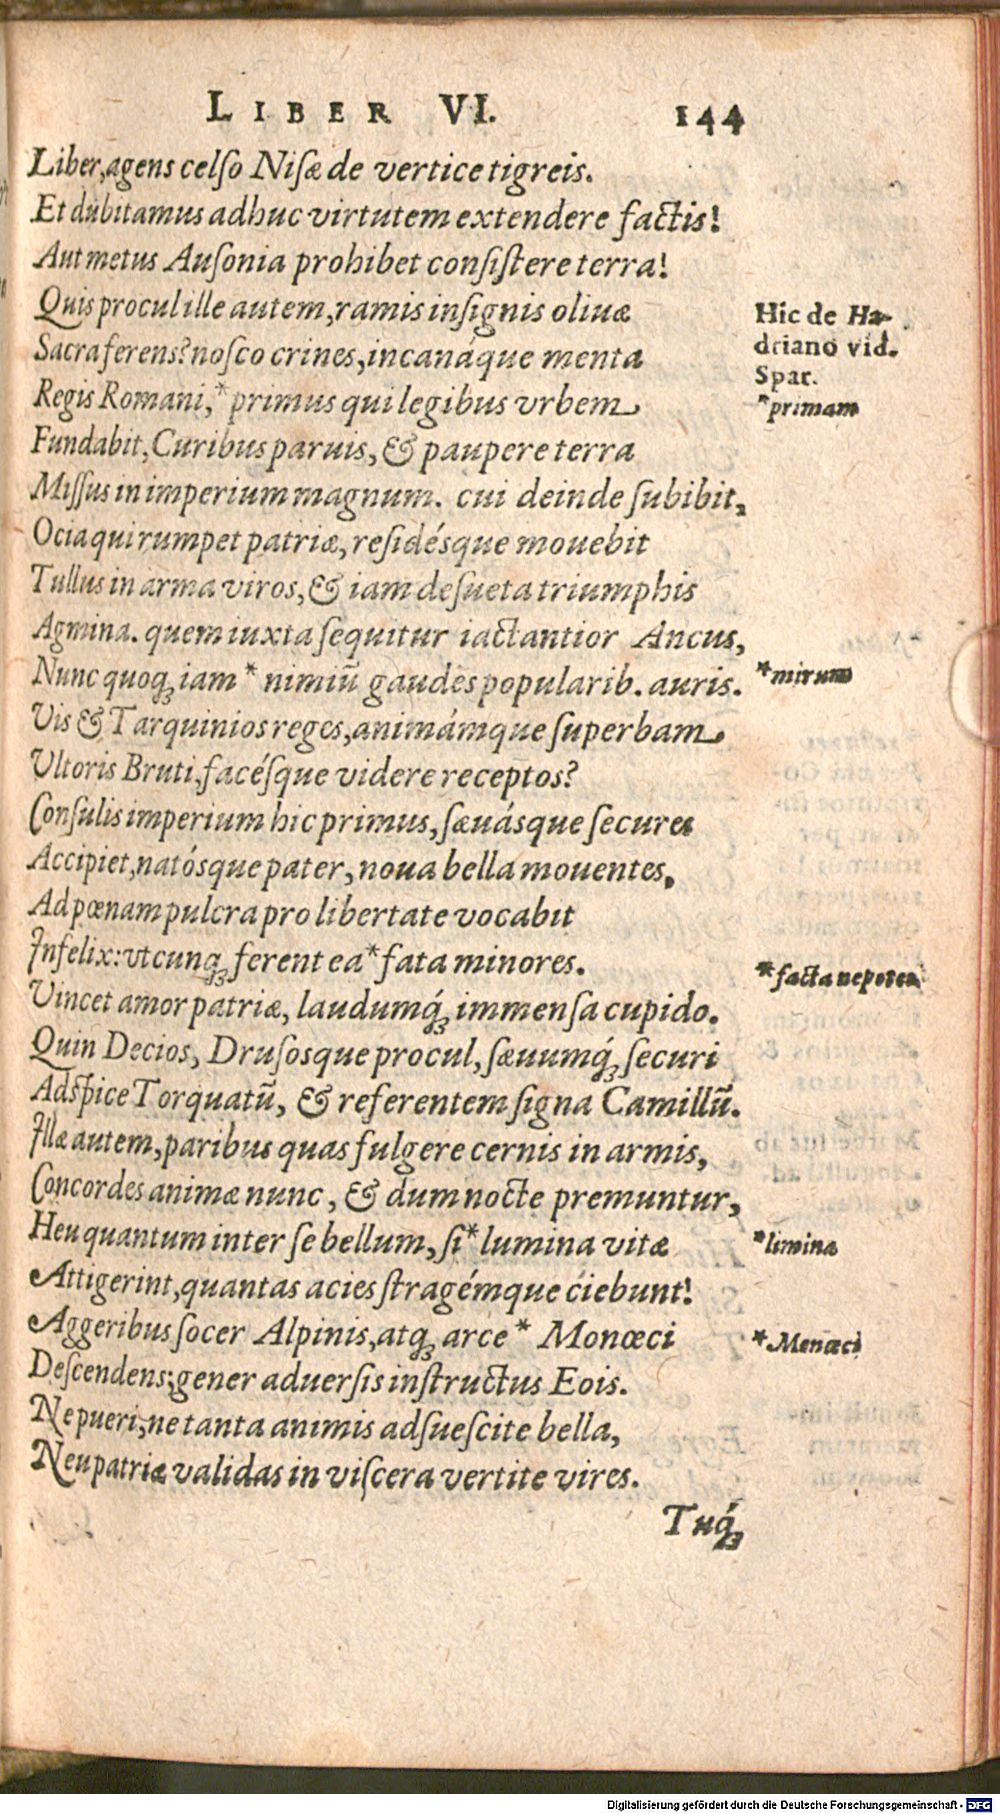 LIBER VI. 144
Liber, agens celſo Niſæ de vertice tigreis.
Et dubitamus adhuc virtutem extendere factis!
Aut metus Auſonia prohibet conſiſtere terra!
Quis procul ille autem, ramis inſignis oliuæ
Sacra ferens? noſco crines, incanáque menta
Regis Romani, *primus qui legibus vrbem
Fundabit, Curibus paruis, & paupere terra
Miſſus in imperium magnum. cui deinde ſubibit,
Ocia qui rumpet patriæ, reſidésque mouebit
Tullus in arma viros, & iam deſueta triumphis
Agmina. quem iuxta ſequitur iactantior Ancus,
Nunc quoqꝫ iam * nimiũ gaudẽs popularib. auris.
Vis & Tarquinios reges, animámque ſuperbam
Vltoris Bruti, facésque videre receptos?
Conſulis imperium hic primus, ſæuásque ſecures
Accipiet, natósque pater, noua bella mouentes,
Ad pœnam pulcra pro libertate vocabit
Infelix: vtcunqꝫ ferent ea *fata minores.
Vincet amor patriæ, laudumq́ꝫ immenſa cupido.
Quin Decios, Druſosque procul, ſæuumq́ꝫ ſecuri
Adſpice Torquatũ, & referentem ſigna Camillũ.
Illæ autem, paribus quas fulgere cernis in armis,
Concordes animæ nunc, & dum nocte premuntur,
Heu quantum inter ſe bellum, ſi *lumina vitæ
Attigerint, quantas acies ſtragémque ciebunt!
Aggeribus ſocer Alpinis, atqꝫ arce * Monœci
Deſcendens; gener aduerſis inſtructus Eois.
Ne pueri, ne tanta animis adſueſcite bella,
Neu patriæ validas in viſcera vertite vires.
Tuq́ꝫ
Hic de Ha-
driano vid.
Spar.
*primam
*mirum
*facta nepotes
*limina
*Menœci
Digitalisierung gefördert durch die Deutsche Forschungsgemeinschaft - DFG